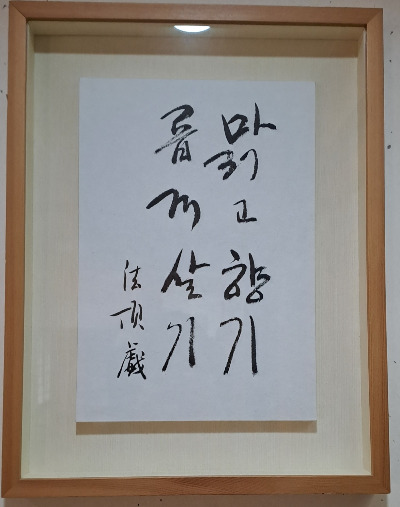 맑고 향기
롭게 살기
法頂 戲